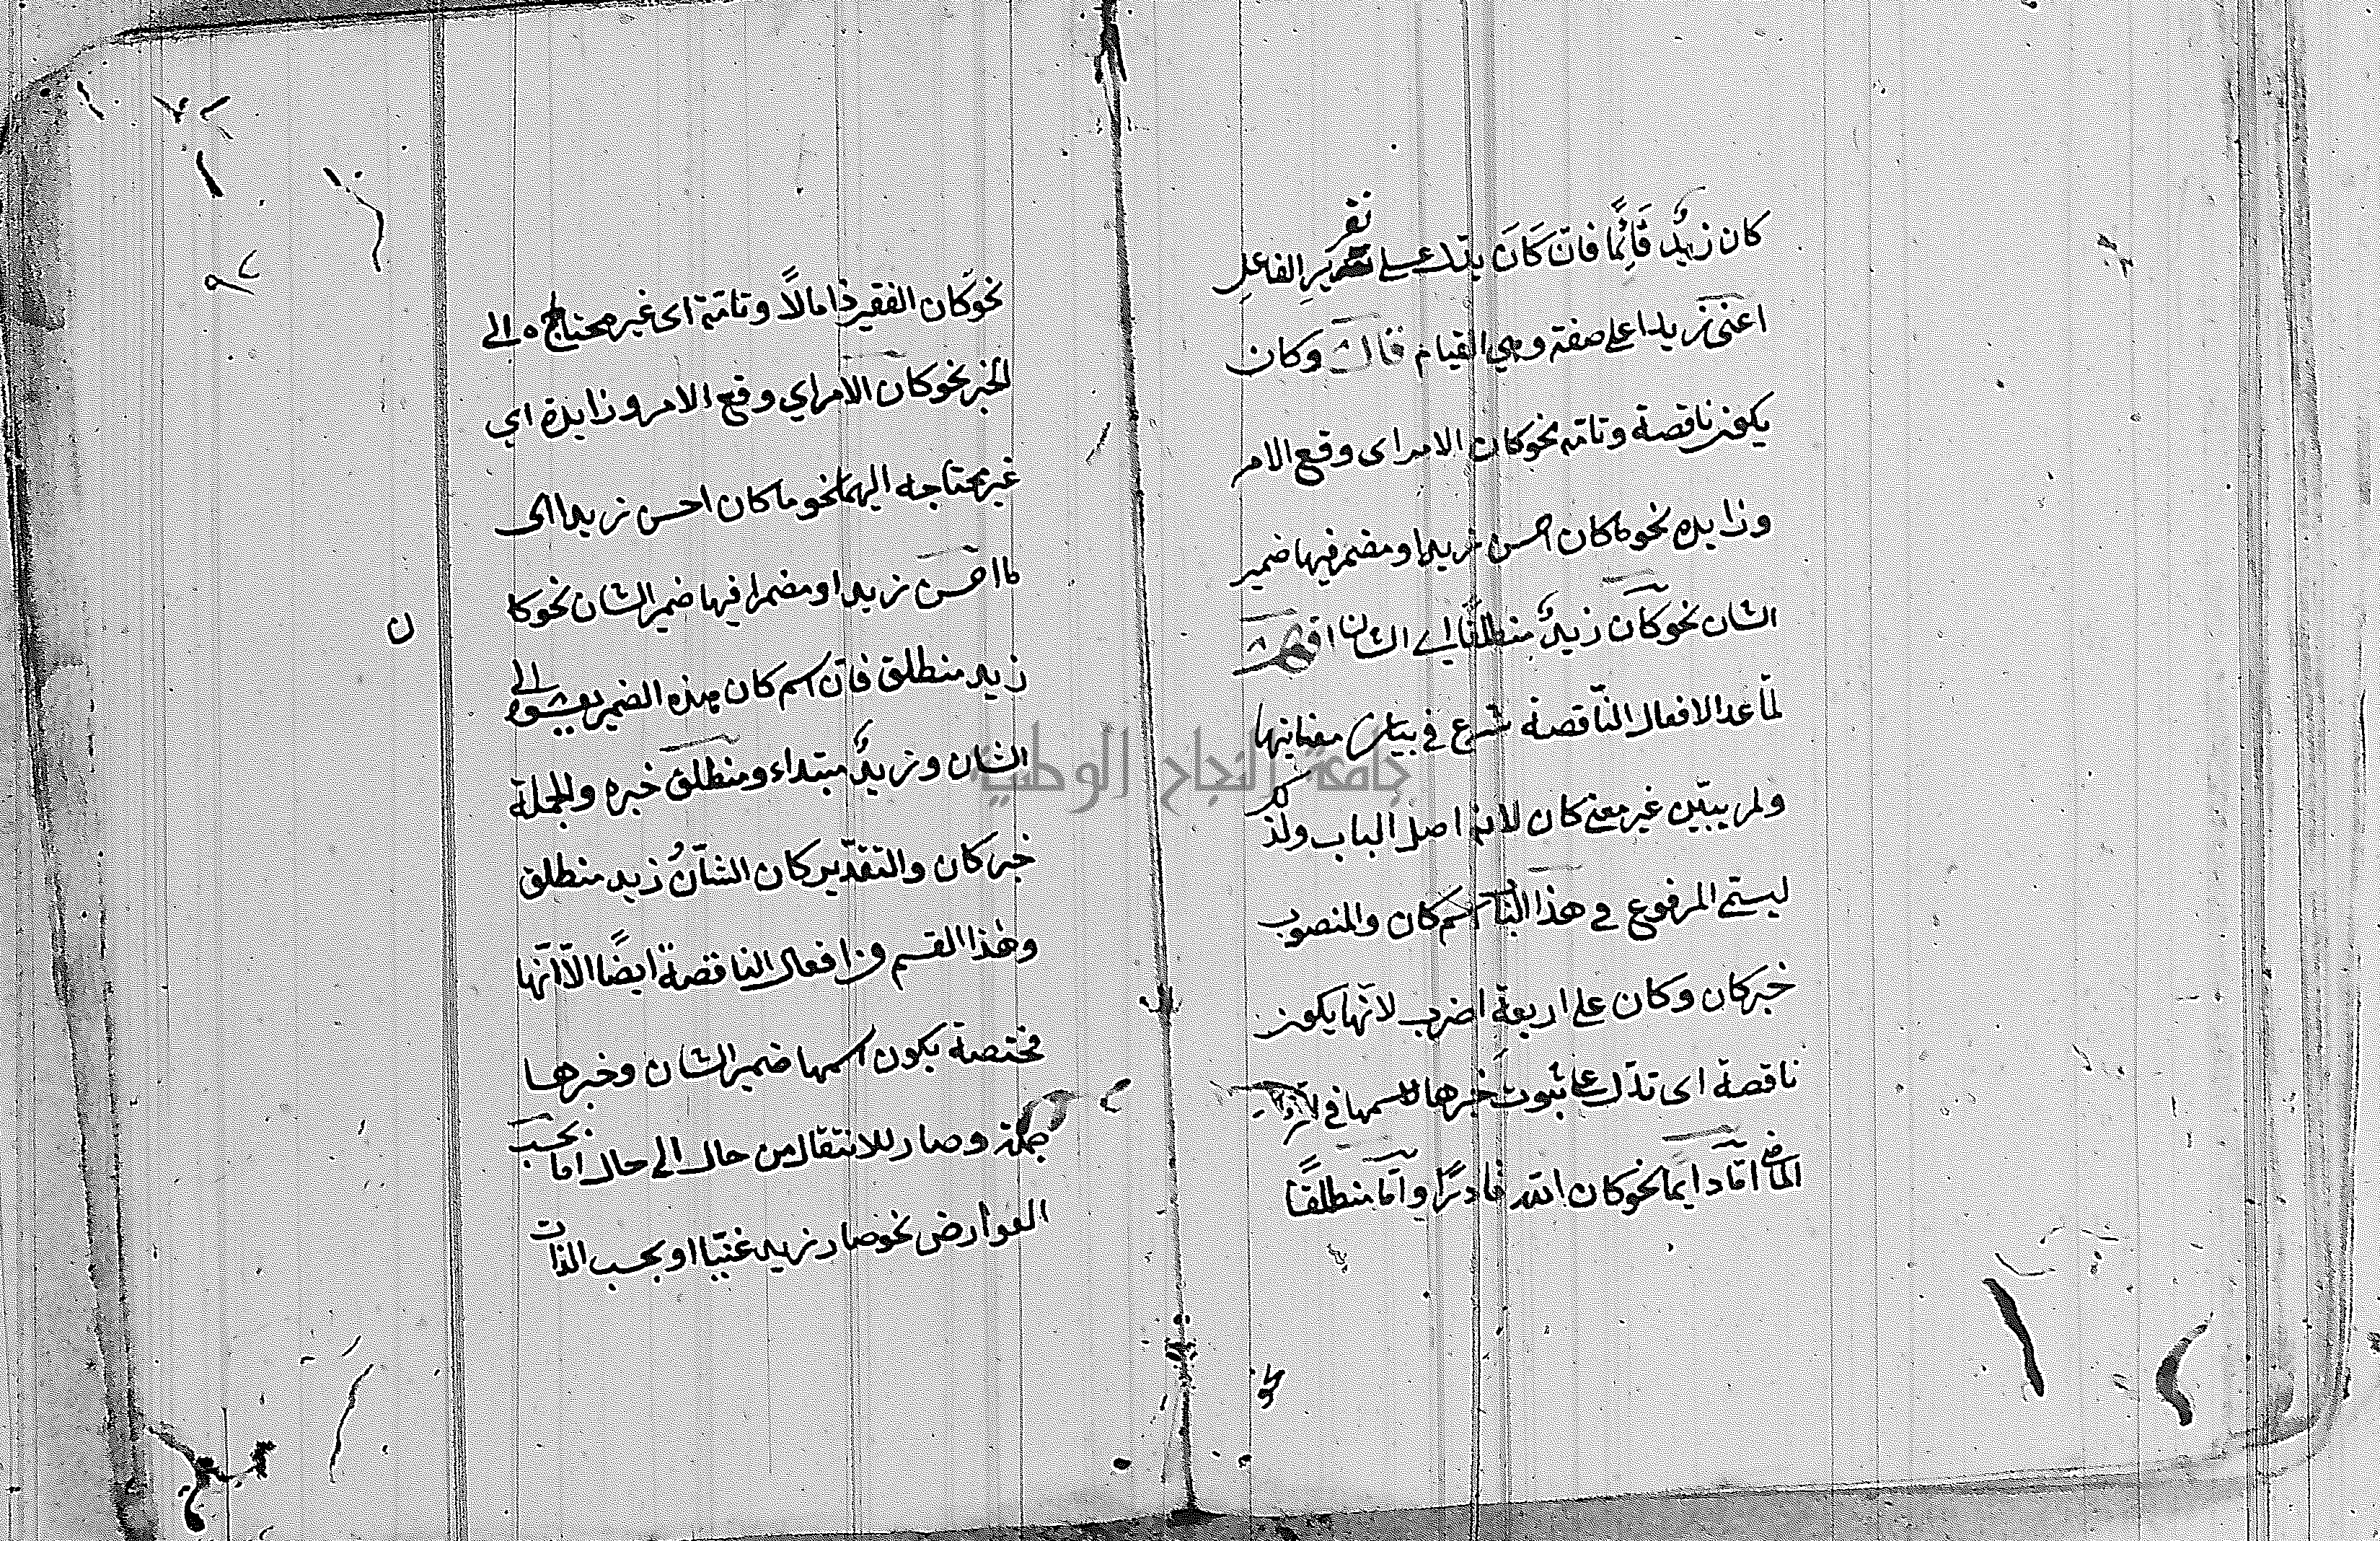 كان زيدٌ قَائِمًا فانّ كَانَ يدّل على تقرير الفاعل
اعنى زيدا على صفة وهي القيام قال وكان
يكون ناقصة وتامّه نحو كان الامر اى وقع الامر
وزايده نحو ما كان احسن زيدا ومضمر فيها ضمير
الشان نحو كان زيدٌ منطلقًا اي الشان اقول
لمّا عد الافعال النّاقصة شرع في بيان معانيها
ولم يبيّن غير معنى كان لانه اصل الباب ولذلك
ليسمّى المرفوع في هذا الباب اسم كان والمنصوب
خبر كان وكان على اربعة اضرب لانّها يكون
ناقصة اى تدّل على ثبوت خبرها لاسمها في
الماضي امّا دايما نحو كان الله قادرًا وامّا منطلقًا
نحو كان الفقير ذا مالًا وتامّة اى غير محتاج ه الى
الخبر نحو كان الامر اي وقع الامر وزايدة اي
غير محتاجه اليهما نحو ما كان احسن زيدا اى
ما احسن زيدا ومضمرا فيها ضمير الشان نحو كا
ن
زيد منطلق فانّ اسم كان بهذه الضمير يعود الى
الشان وزيدٌ مبتداء ومنطلق خبره والجملة
خبر كان والتقدّير كان الشّانُ زيد منطلق
وهذا القسم من افعال الناقصة ايضًا الّا انّها
مختصة بكون اسمها ضمير الشان وخبرها
جملة وصار للانتقال من حال الى حال امّا بحسب
العوارض نحو صار زيد غنيّا او بحسب الذات
جامعة النجاح الوطنية